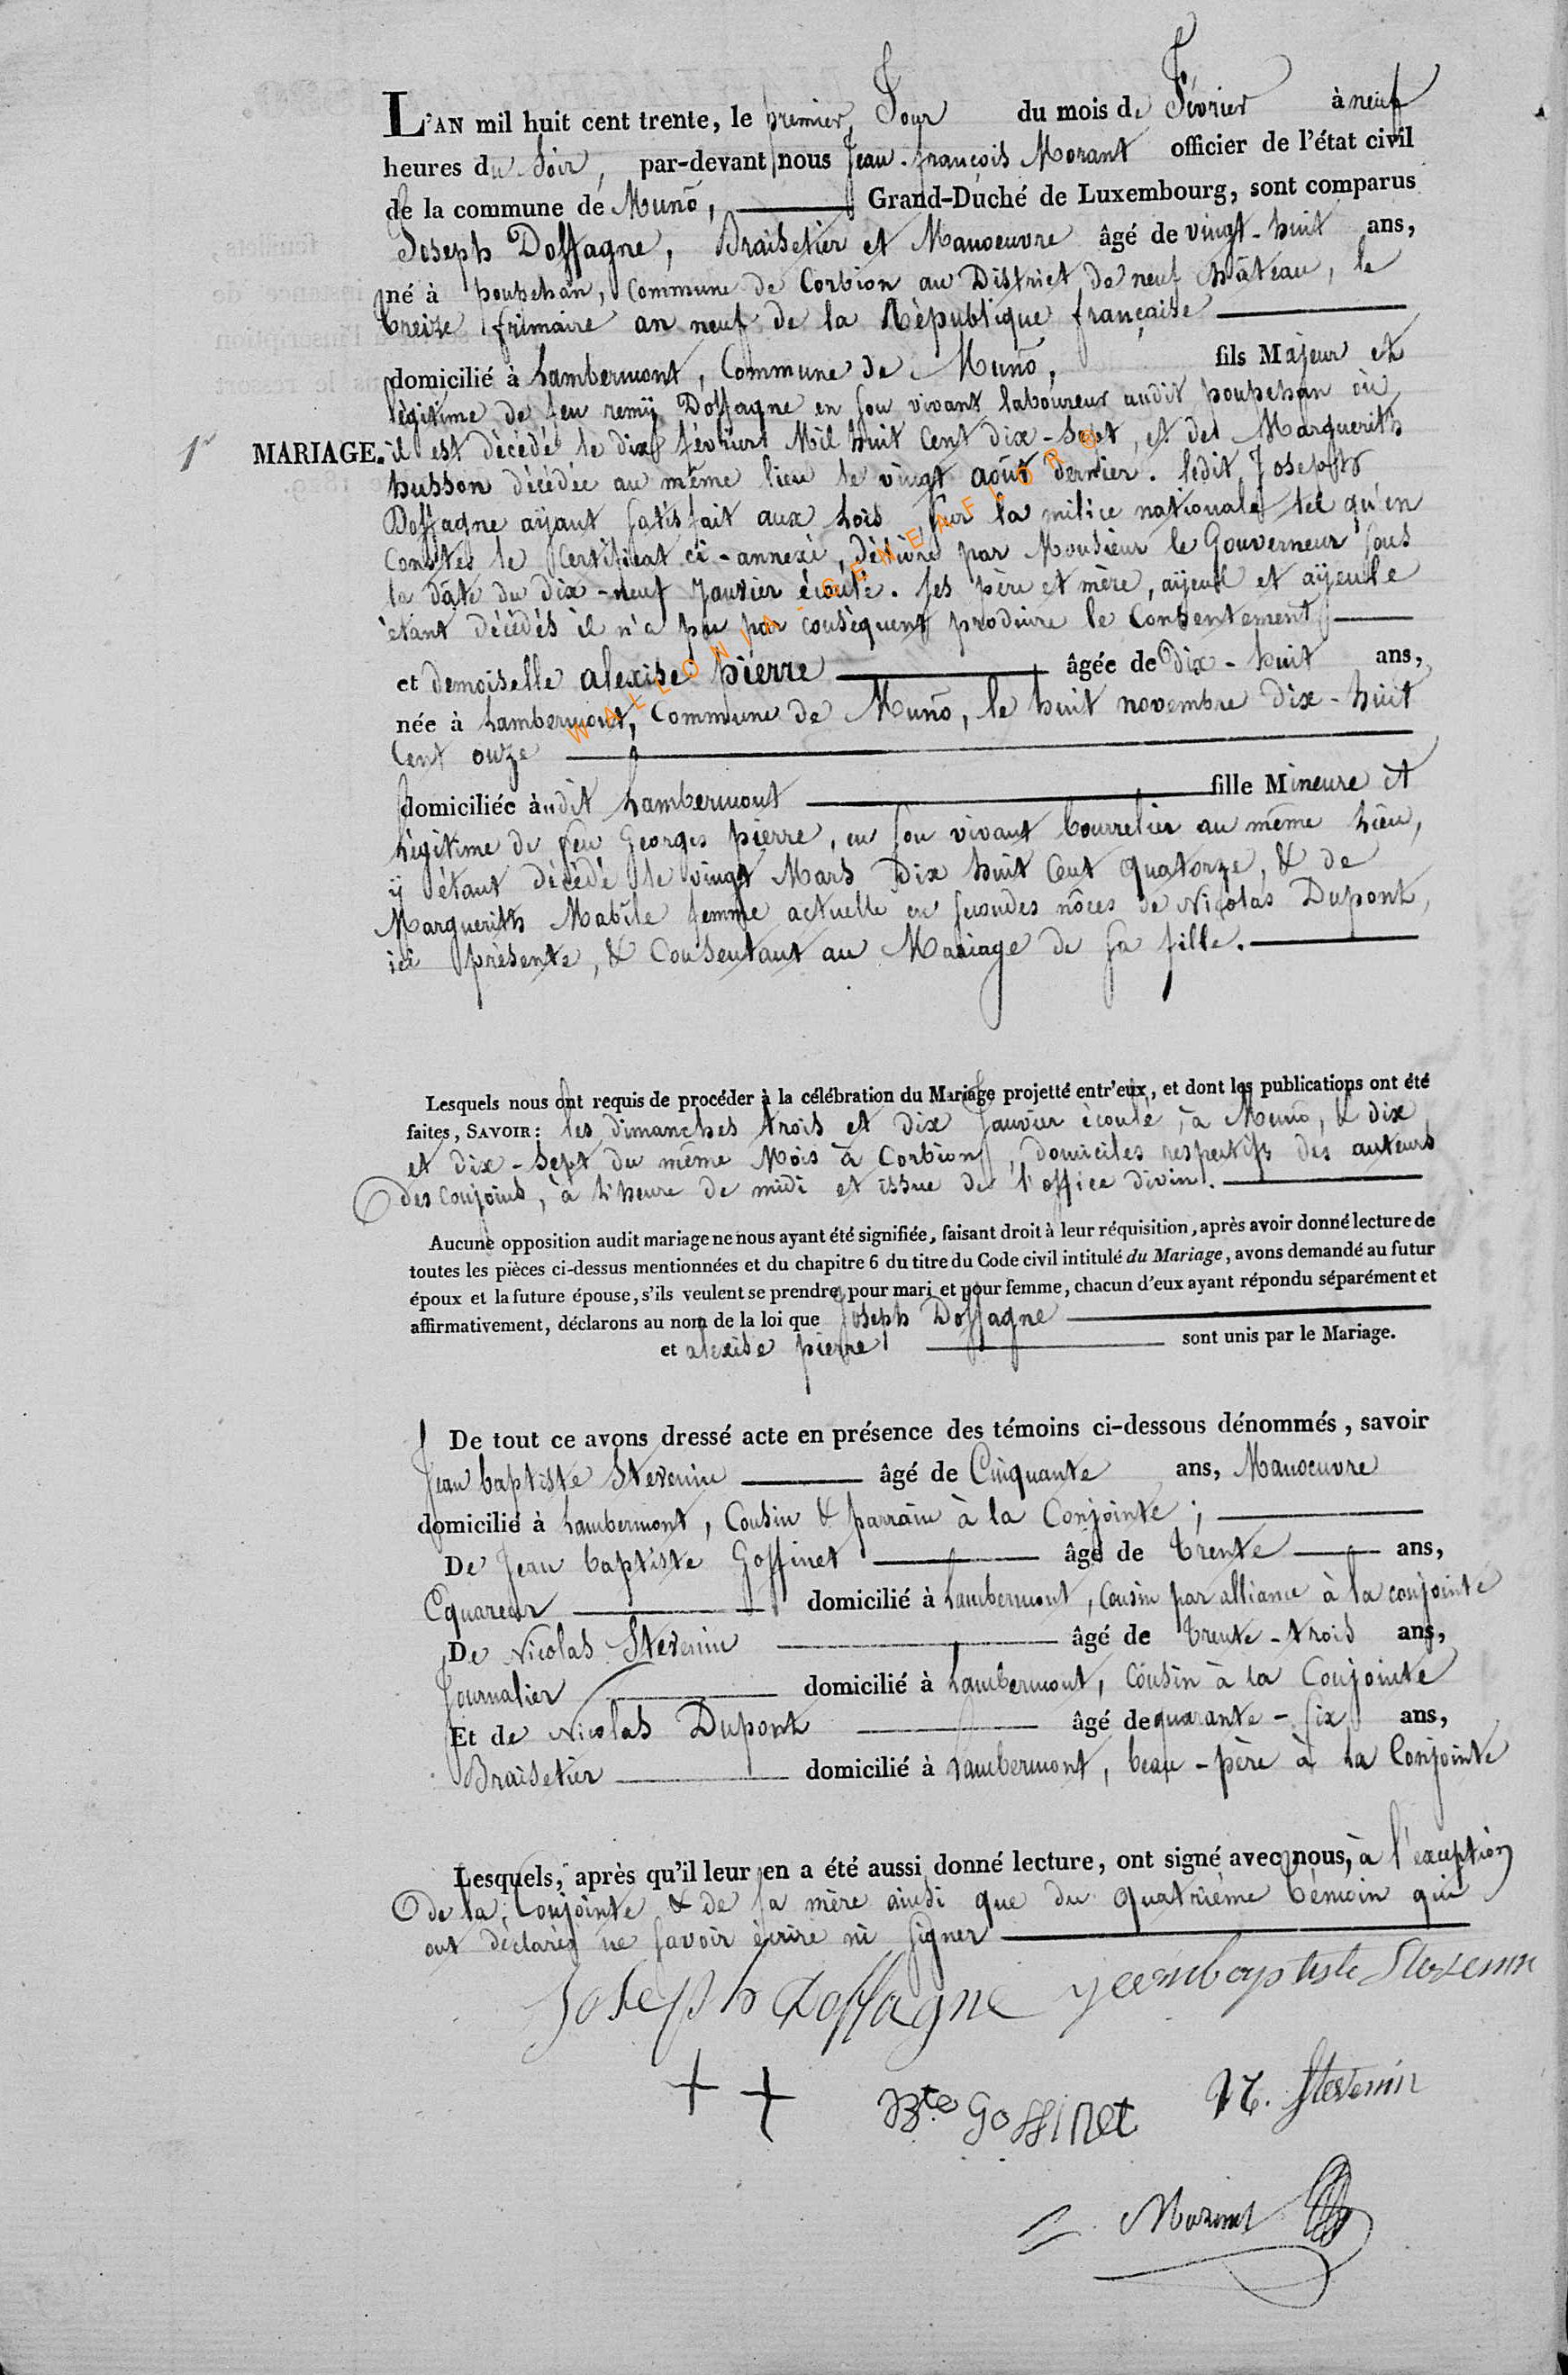 L'AN mil huit cent trente, le premier Jour du mois de Février à neuf
heures du Soir, par-devant nous Jean-françois Morant officier de l'état civil
de la commune de Muno, Grand-Duché de Luxembourg, sont comparus
Joseph Doffagne, Braisetier et Manoeuvre âgé de vingt-huit ans,
né à poupehan, Commune de Corbion au District de neuf château, le
treize frimaire an neuf de la République française
domicilié à Lambermont, Commune de Muno, fils Majeur et
légitime de feu remÿ Doffagne en son vivant laboureur audit poupehan où
1r MARIAGE. il est décédé le dix février Mil huit Cent dix-sept, et de Marguerith
husson décédée au même lieu le vingt août dernier. ledit Joseph
Doffagne aÿant satisfait aux Lois sur la milice nationale tel qu'en
Conste le Certificat ci-annexé, délivré par Monsieur le Gouverneur sous
la date du dix-neuf Janvier écoulé. ses père et mère, aÿeul et aÿeule
étant décédés il n'a pu par conséquent produire le Consentement
et demoiselle alexise pierre âgée de Dix-huit ans,
née à Lambermont, Commune de Muno, le huit novembre Dix-huit
Cent onze
domiciliée àudit Lambermont fille Mineure et
Légitime de feu Georges pierre, en son vivant bourrelier au même Lieu,
ÿ étant décédé le vingt Mars Dix huit Cent quatorze, & de
Marguerith Mabile femme actuelle en secondes nôces de Nicolas Dupont,
ici présente, & Consentant au Mariage de sa fille.
Lesquels nous ont requis de procéder à la célébration du Mariage projetté entr'eux, et dont les publications ont été
faites, SAVOIR: les dimanches trois et dix Janvier écoulé, à Muno, & dix
et dix-sept du même Mois à Corbion, domiciles respectifs des auteurs
des conjoins, à l'heure de midi et issue de l'office divin.
Aucune opposition audit mariage ne nous ayant été signifiée, faisant droit à leur réquisition, après avoir donné lecture de
toutes les pièces ci-dessus mentionnées et du chapitre 6 du titre du Code civil intitulé du Mariage, avons demandé au futur
époux et la future épouse, s'ils veulent se prendre pour mari et pour femme, chacun d'eux ayant répondu séparément et
affirmativement, déclarons au nom de la loi que Joseph Doffagne
et alexise pierre sont unis par le Mariage.
De tout ce avons dressé acte en présence des témoins ci-dessous dénommés, savoir
Jean baptiste Stevenin âgé de Cinquante ans, Manoeuvre
domicilié à Lambermont, Cousin & parrain à la Conjointe;
De Jean baptiste Goffinet âgé de trente ans,
Equareur domicilié à Lambermont, cousin par alliance à la conjointe
De Nicolas Stevenin âgé de trente-trois ans,
Journalier domicilié à Lambermont, Cousin à la Conjointe
Et de Nicolas Dupont âgé de quarante-six ans,
Braisetier domicilié à Lambermont, beau-père à la Conjointe
Lesquels, après qu'il leur en a été aussi donné lecture, ont signé avec nous, à l'exception
de la Conjointe & de sa mère ainsi que du quatrième témoin qui
ont déclarés ne savoir écrire ni signer
Joseph Doffagne jeanbaptiste Stevenin
Bte Goffinet N. Stevenin
Morant
WALLONIA-GENEAFLOR©